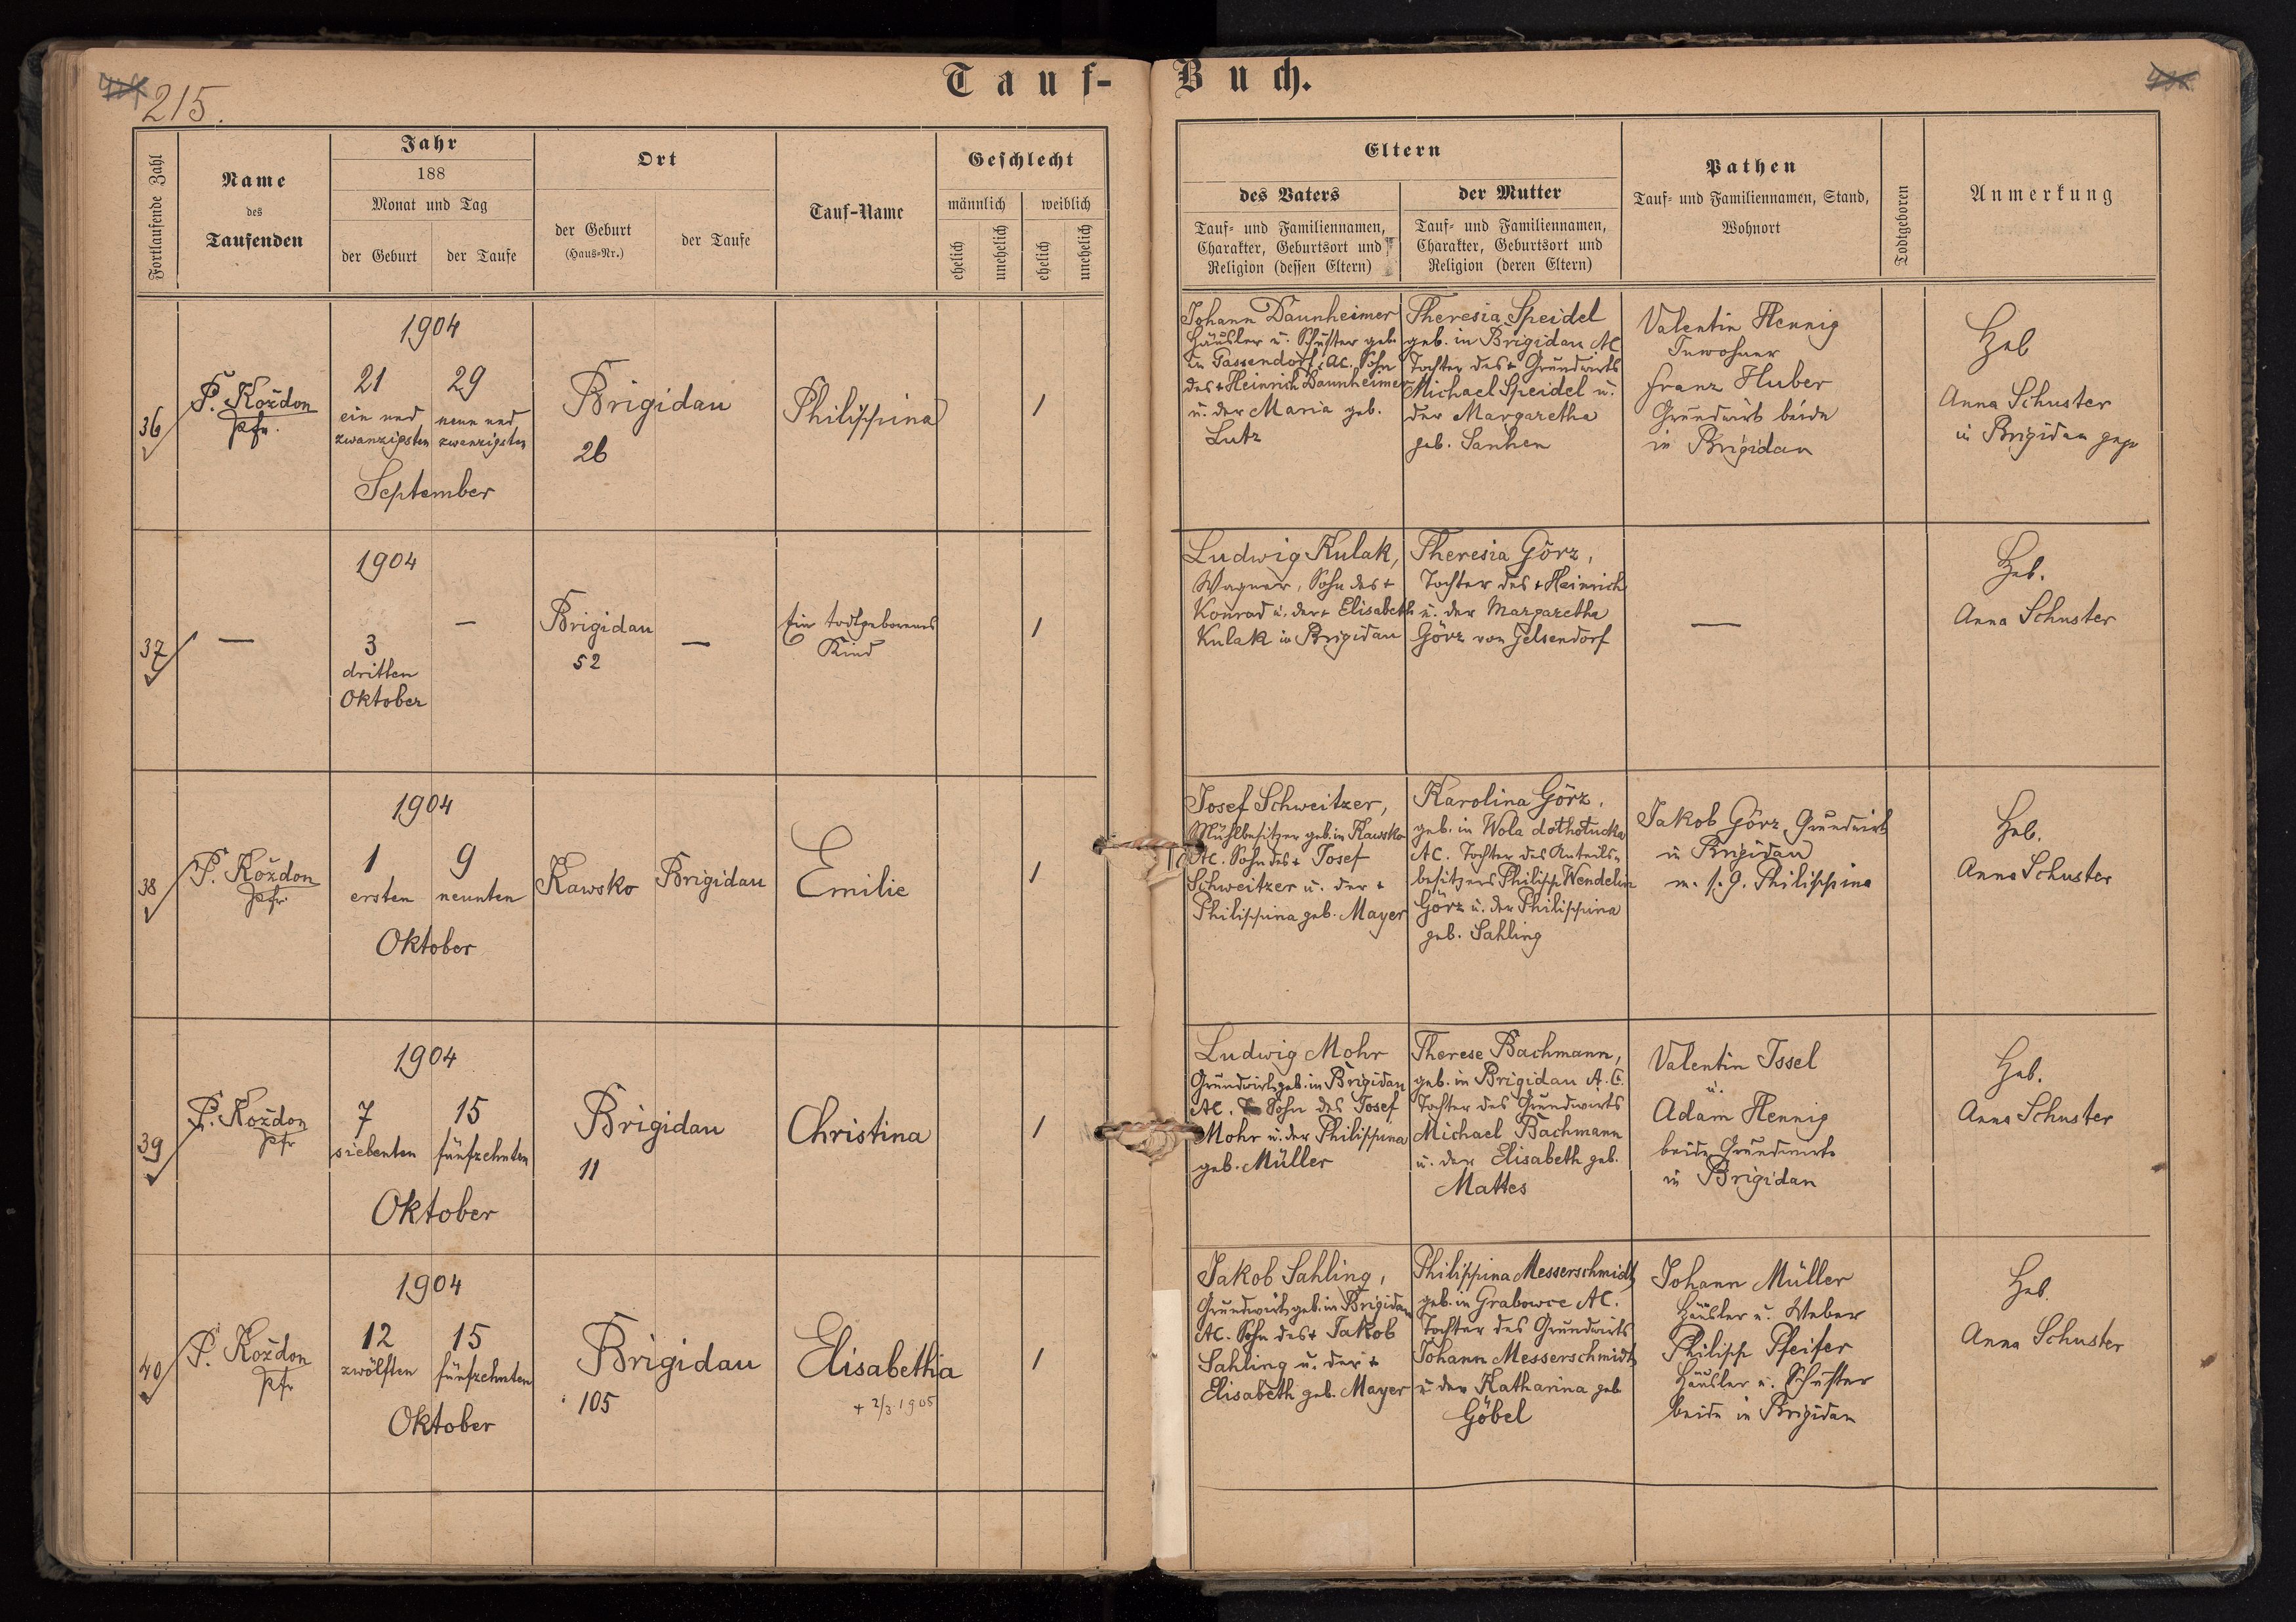 215.
Tauf-Buch.
Fortlaufende Zahl
Name
des
Taufenden
Jahr
188
Monat und Tag
der Geburt
der Taufe
Ort
der Geburt
(Haus-Nr.)
der Taufe
Tauf-Name
Geschlecht
männlich
weiblich
ehelich
unehelich
ehelich
unehelich
Eltern
des Vaters
Tauf- und Familiennamen,
Charakter, Geburtsort und
Religion (dessen Eltern)
der Mutter
Tauf- und Familiennamen,
Charakter, Geburtsort und
Religion (deren Eltern)
Pathen
Tauf- und Familiennamen, Stand,
Wohnort
Todtgeboren
Anmerkung
36
P. Kożdon
Pfr.
1904
21 29
ein und neun und
zwanzigsten zwanzigsten
September
Brigidau
26
Philippina
1
Johann Daunheimer
Häusler u. Schuster geb.
in Gassendorf, AC. Sohn
des + Heinrich Daunheimer
u. der Maria geb.
Lutz
Theresia Speidel
geb. in Brigidau AC
Tochter des + Grundwirts
Michael Speidel u.
der Margaretha
geb. Sanhen
Valentin Hennig
Inwohner
Franz Huber
Grundwirt beide
in Brigidau
Heb
Anna Schuster
in Brigidau
37
—
1904
3
dritten
Oktober
—
Brigidau
52
—
Ein todtgeborenes
Kind
1
Ludwig Kulak,
Wagner, Sohn des +
Konrad u. der + Elisabeth
Kulak in Brigidau
Theresia Görz,
Tochter des + Heinrich
u. der Margaretha
Görz von Gelsendorf
—
Heb.
Anna Schuster
38
P. Kożdon
Pfr.
1904
1 9
ersten neunten
Oktober
Kawsko
Brigidau
Emilie
1
Josef Schweitzer,
Mühlbesitzer geb. in Kawsko
AC. Sohn des + Josef
Schweitzer u. der +
Philippina geb. Mayer
Karolina Görz,
geb. in Wola dołhołucka
AC. Tochter des Anteils-
besitzers Philipp Wendelin
Görz u. der Philippina
geb. Sahling
Jakob Görz, Grundwirt
in Brigidau
m. s. G. Philippina
Heb.
Anna Schuster
39
P. Kożdon
Pfr
1904
7 15
siebenten fünfzehnten
Oktober
Brigidau
11
Christina
1
Ludwig Mohr
Grundwirt, geb. in Brigidau
AC. Sohn des Josef
Mohr u. der Philippina
geb. Müller
Therese Bachmann,
geb. in Brigidau A.C.
Tochter des Grundwirts
Michael Bachmann
u. der Elisabeth geb.
Mattes
Valentin Issel
u.
Adam Hennig
beide Grundwirte
in Brigidau
Heb.
Anna Schuster
40
P. Kożdon
Pfr
1904
12 15
zwölften fünfzehnten
Oktober
Brigidau
105
Elisabetha
+ 2/3 1905
1
Jakob Sahling,
Grundwirt, geb. in Brigidau
AC. Sohn des + Jakob
Sahling u. der +
Elisabeth geb. Mayer
Philippina Messerschmidt,
geb. in Grabowce AC.
Tochter des Grundwirts
Johann Messerschmidt
u. der Katharina geb
Göbel
Johann Müller
Häusler u. Weber
Philipp Pfeifer
Häusler u. Schuster
beide in Brigidau
Heb.
Anna Schuster